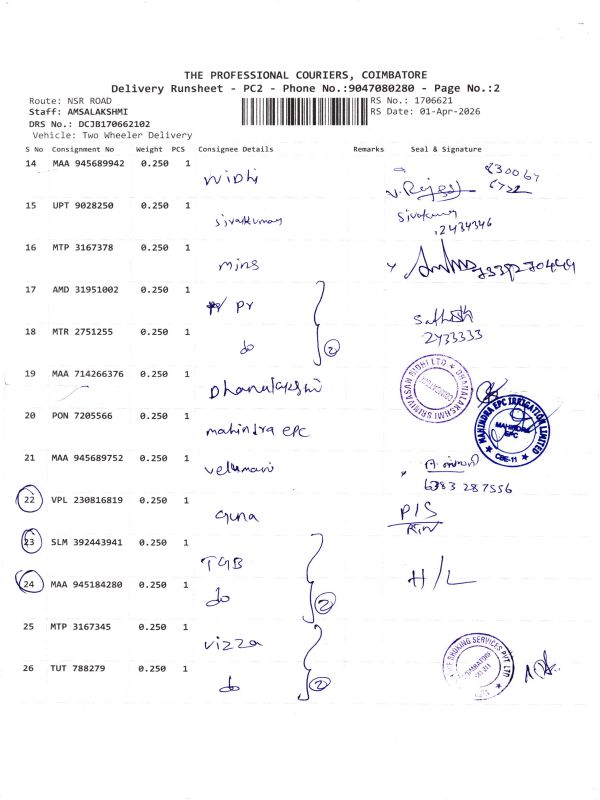 THE PROFESSIONAL COURIERS, COIMBATORE
Delivery Runsheet - PC2 - Phone No.:9047080280 - Page No.:2
Route: NSR ROAD
RS No.: 1706621
Staff: AMSALAKSHMI
RS Date: 01-Apr-2026
DRS No.: DCJB170662102
Vehicle: Two Wheeler Delivery
S No Consignment No Weight PCS Consignee Details Remarks Seal & Signature
14 MAA 945689942 0.250 1 Nidhi V. Rajesh
15 UPT 9028250 0.250 1 Sivakumar Sivakumar
2434346
16 MTP 3167378 0.250 1 mins
17 AMD 31951002 0.250 1 PY
Sathish
18 MTR 2751255 0.250 1 do 2 2433333
19 MAA 714266376 0.250 1 Dhanalakshmi DHANALAKSHMI SRINIVASAN NIDHI LTD
20 PON 7205566 0.250 1 mahindra EPC MAHINDRA EPC IRRIGATION LIMITED
MAHINDRA
EPC
CBE-11
21 MAA 945689752 0.250 1 Velumani
6383 287556
22 VPL 230816819 0.250 1 Guna P/S
23 SLM 392443941 0.250 1 TGB
24 MAA 945184280 0.250 1 do 2 H/L
25 MTP 3167345 0.250 1 Vizza BROKING SERVICES PVT LTD
26 TUT 788279 0.250 1 do 2